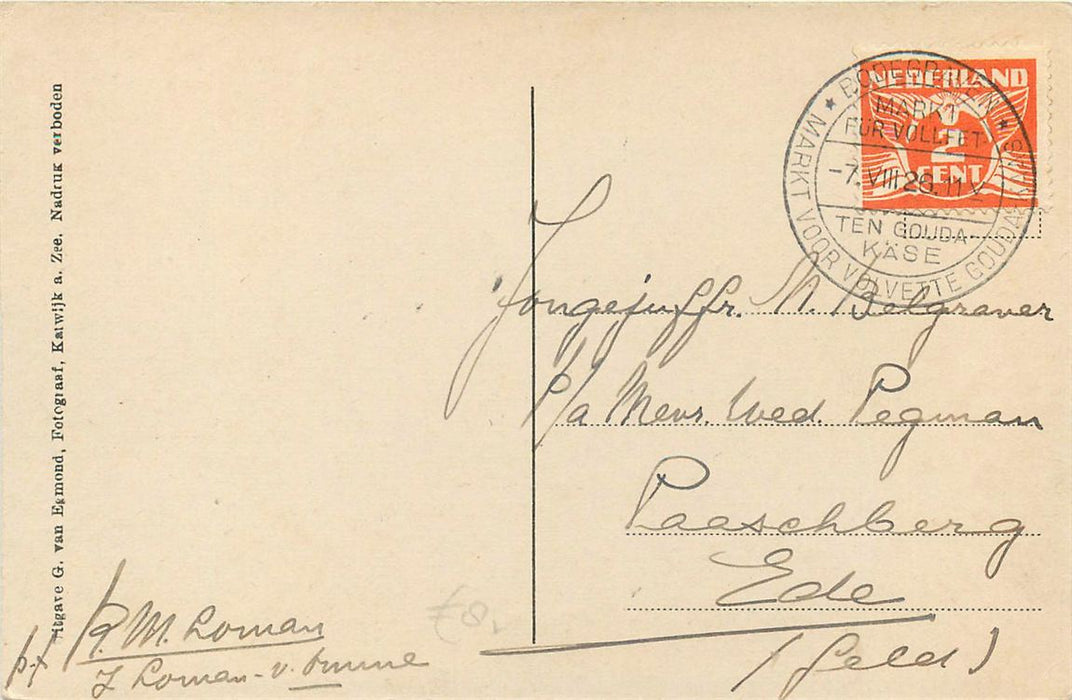 Uitgave G. van Egmond, Fotograaf, Katwijk a. Zee. Nadruk verboden
NEDERLAND
2
CENT
★ BODEGRAVEN ★
MARKT VOOR VOLVETTE GOUDA
MARKT
FÜR VOLLFET-
-7.VIII 28.11 V
TEN GOUDA-
KÄSE
Jongejuffr. M. Belgraver
p/a Mevr. Wed. Pegman
Paaschberg
Ede
(Geld)
R. M. Loman
Loman - v.
€8,